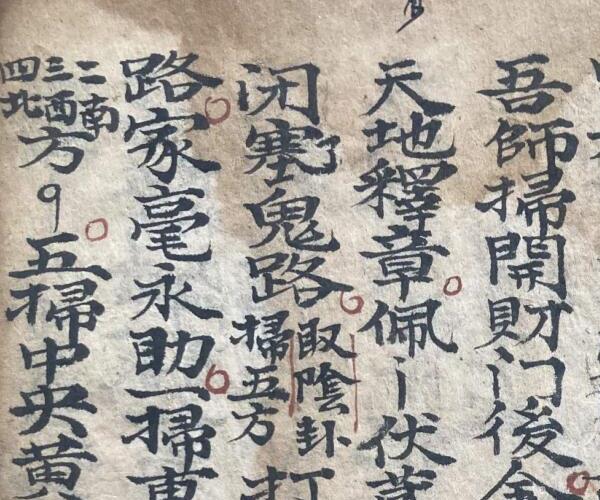 吾師掃開財门後
天地釋章佩丨伏
闭塞了鬼路
取陰卦
掃五方
打
路家毫永助一掃東
二南
三西
四北
方
五掃中央黄